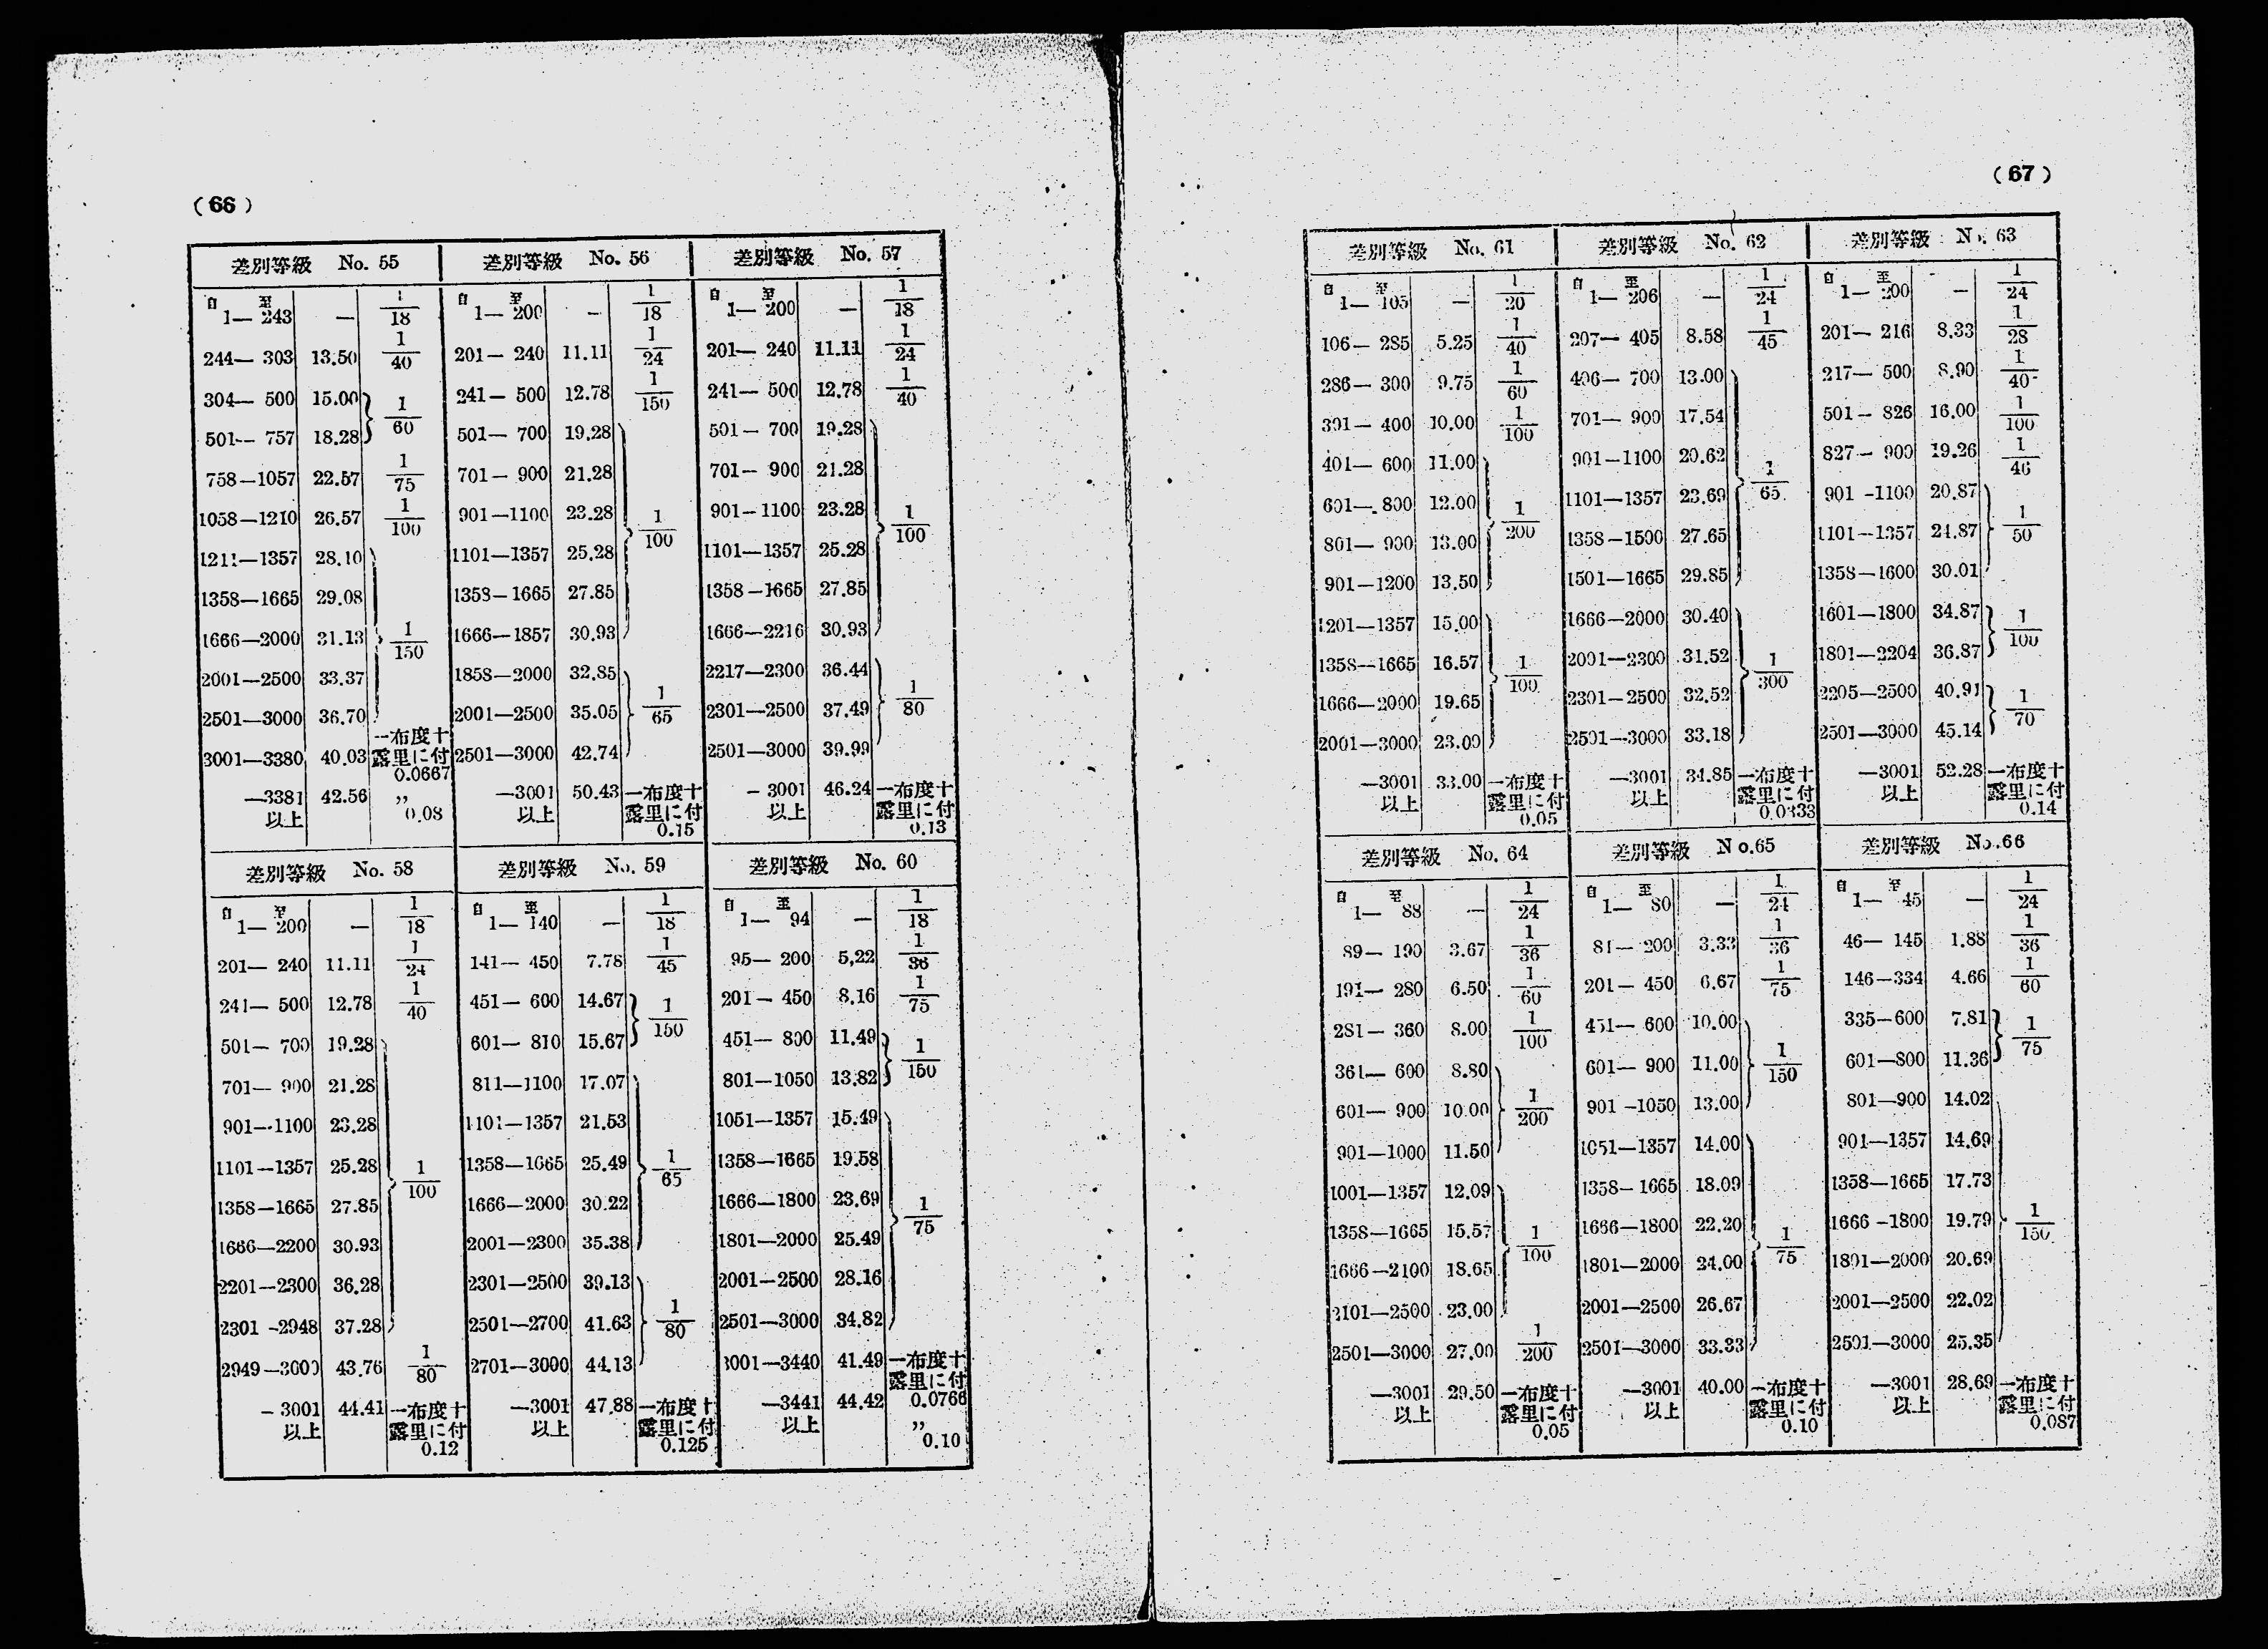 (66)
差別等級 No. 55
自 至
1— 243 — 1/18
244— 303 13.50 1/40
304— 500 15.00
501— 757 18.28 1/60
758—1057 22.57 1/75
1058—1210 26.57 1/100
1211—1357 28.10
1358—1665 29.08
1666—2000 31.13 1/150
2001—2500 33.37
2501—3000 36.70
3001—3380 40.03 一布度十露里に付 0.0667
—3381以上 42.56 〃 0.08
差別等級 No. 56
自 至
1— 200 — 1/18
201— 240 11.11 1/24
241— 500 12.78 1/150
501— 700 19.28
701— 900 21.28
901—1100 23.28 1/100
1101—1357 25.28
1358—1665 27.85
1666—1857 30.93
1858—2000 32.85
2001—2500 35.05 1/65
2501—3000 42.74
—3001以上 50.43 一布度十露里に付 0.15
差別等級 No. 57
自 至
1— 200 — 1/18
201— 240 11.11 1/24
241— 500 12.78 1/40
501— 700 19.28
701— 900 21.28
901—1100 23.28 1/100
1101—1357 25.28
1358—1665 27.85
1666—2216 30.93
2217—2300 36.44
2301—2500 37.49 1/80
2501—3000 39.99
—3001以上 46.24 一布度十露里に付 0.13
差別等級 No. 58
自 至
1— 200 — 1/18
201— 240 11.11 1/24
241— 500 12.78 1/40
501— 700 19.28
701— 900 21.28
901—1100 23.28
1101—1357 25.28 1/100
1358—1665 27.85
1666—2200 30.93
2201—2300 36.28
2301—2948 37.28
2949—3000 43.76 1/80
—3001以上 44.41 一布度十露里に付 0.12
差別等級 No. 59
自 至
1— 140 — 1/18
141— 450 7.78 1/45
451— 600 14.67
601— 810 15.67 1/150
811—1100 17.07
1101—1357 21.53
1358—1665 25.49 1/65
1666—2000 30.22
2001—2300 35.38
2301—2500 39.13
2501—2700 41.63 1/80
2701—3000 44.13
—3001以上 47.88 一布度十露里に付 0.125
差別等級 No. 60
自 至
1— 94 — 1/18
95— 200 5.22 1/36
201— 450 8.16 1/75
451— 800 11.49
801—1050 13.82 1/150
1051—1357 15.49
1358—1665 19.58
1666—1800 23.69 1/75
1801—2000 25.49
2001—2500 28.16
2501—3000 34.82
3001—3440 41.49 一布度十露里に付 0.0766
—3441以上 44.42 〃 0.10
(67)
差別等級 No. 61
自 至
1— 105 — 1/20
106— 285 5.25 1/40
286— 300 9.75 1/60
301— 400 10.00 1/100
401— 600 11.00
601— 800 12.00 1/200
801— 900 13.00
901—1200 13.50
1201—1357 15.00
1358—1665 16.57 1/100
1666—2000 19.65
2001—3000 23.00
—3001以上 33.00 一布度十露里に付 0.05
差別等級 No. 62
自 至
1— 206 — 1/24
207— 405 8.58 1/45
406— 700 13.00
701— 900 17.54
901—1100 20.62 1/65
1101—1357 23.69
1358—1500 27.65
1501—1665 29.85
1666—2000 30.40
2001—2300 31.52 1/300
2301—2500 32.52
2501—3000 33.18
—3001以上 34.85 一布度十露里に付 0.0333
差別等級 No. 63
自 至
1— 200 — 1/24
201— 216 8.33 1/28
217— 500 8.90 1/40
501— 826 16.00 1/100
827— 900 19.26 1/46
901—1100 20.87
1101—1357 24.87 1/50
1358—1600 30.01
1601—1800 34.87
1801—2204 36.87 1/100
2205—2500 40.91
2501—3000 45.14 1/70
—3001以上 52.28 一布度十露里に付 0.14
差別等級 No. 64
自 至
1— 88 — 1/24
89— 190 3.67 1/36
191— 280 6.50 1/60
281— 360 8.00 1/100
361— 600 8.80
601— 900 10.00 1/200
901—1000 11.50
1001—1357 12.09
1358—1665 15.57 1/100
1666—2100 18.65
2101—2500 23.00
2501—3000 27.00 1/200
—3001以上 29.50 一布度十露里に付 0.05
差別等級 No.65
自 至
1— 80 — 1/24
81— 200 3.33 1/36
201— 450 6.67 1/75
451— 600 10.00
601— 900 11.00 1/150
901—1050 13.00
1051—1357 14.00
1358—1665 18.09
1666—1800 22.20 1/75
1801—2000 24.00
2001—2500 26.67
2501—3000 33.33
—3001以上 40.00 一布度十露里に付 0.10
差別等級 No.66
自 至
1— 45 — 1/24
46— 145 1.88 1/36
146—334 4.66 1/60
335—600 7.81
601—800 11.36 1/75
801—900 14.02
901—1357 14.69
1358—1665 17.73
1666—1800 19.79 1/150
1801—2000 20.69
2001—2500 22.02
2501—3000 25.35
—3001以上 28.69 一布度十露里に付 0.087